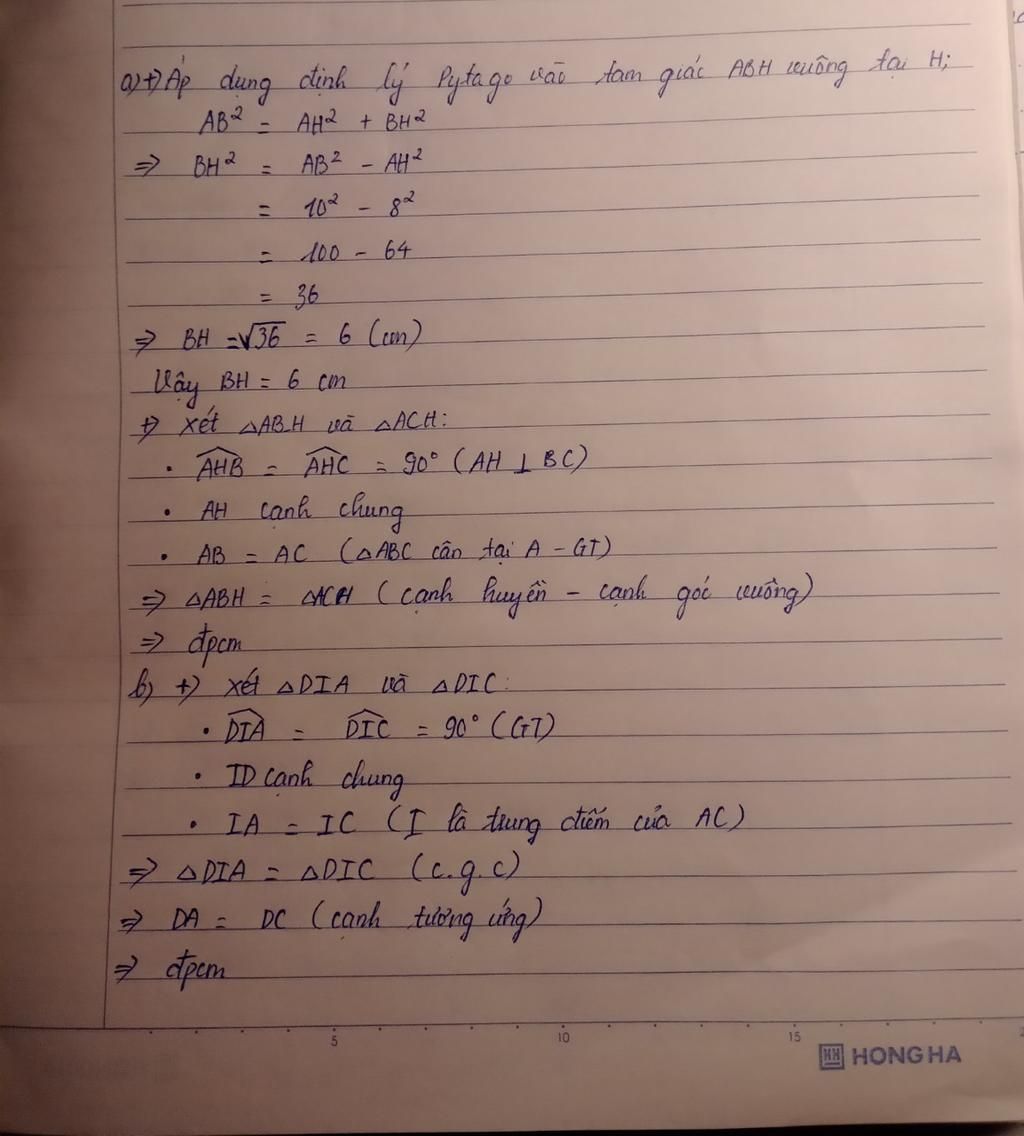 a) +) Áp dụng định lý Pytago vào tam giác ABH vuông tại H;
AB² = AH² + BH²
=> BH² = AB² - AH²
= 10² - 8²
= 100 - 64
= 36
=> BH = √36 = 6 (cm)
Vậy BH = 6 cm
+) Xét △ABH và △ACH:
• \widehat{AHB} = \widehat{AHC} = 90° (AH ⊥ BC)
• AH cạnh chung
• AB = AC (△ABC cân tại A - GT)
=> △ABH = △ACH (cạnh huyền - cạnh góc vuông)
=> đpcm
b) +) Xét △DIA và △DIC:
• \widehat{DIA} = \widehat{DIC} = 90° (GT)
• ID cạnh chung
• IA = IC (I là trung điểm của AC)
=> △DIA = △DIC (c.g.c)
=> DA = DC (cạnh tương ứng)
=> đpcm
5 10 15
HONG HA